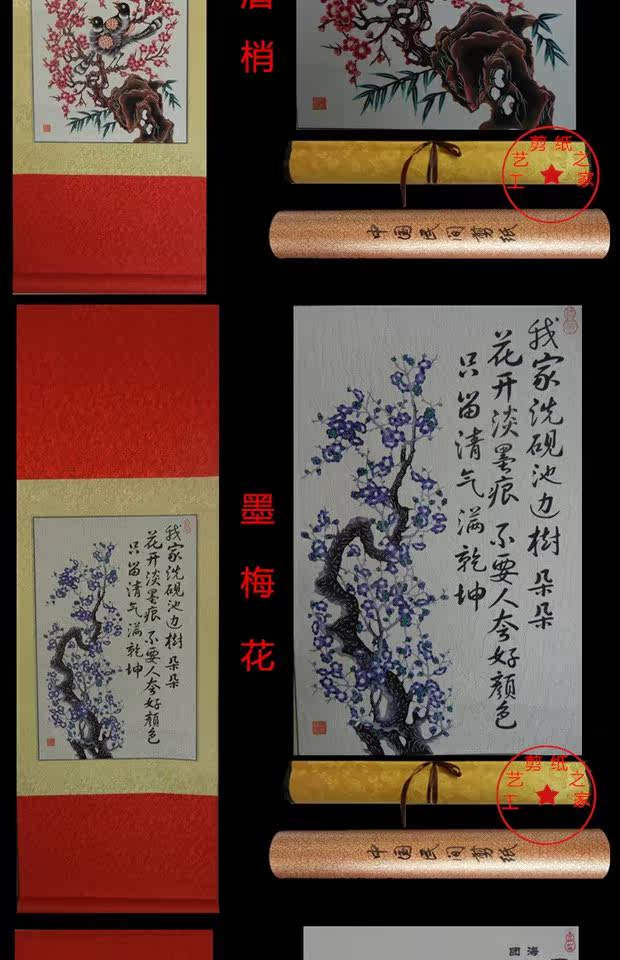 梢
工艺剪纸之家
中国民间剪纸
墨梅花
我家洗硯池边樹朵朵
花开淡墨痕不要人夸好顏色
只留清气满乾坤
我家洗硯池边樹朵朵
花开淡墨痕不要人夸好顏色
只留清气满乾坤
工艺剪纸之家
中国民间剪纸